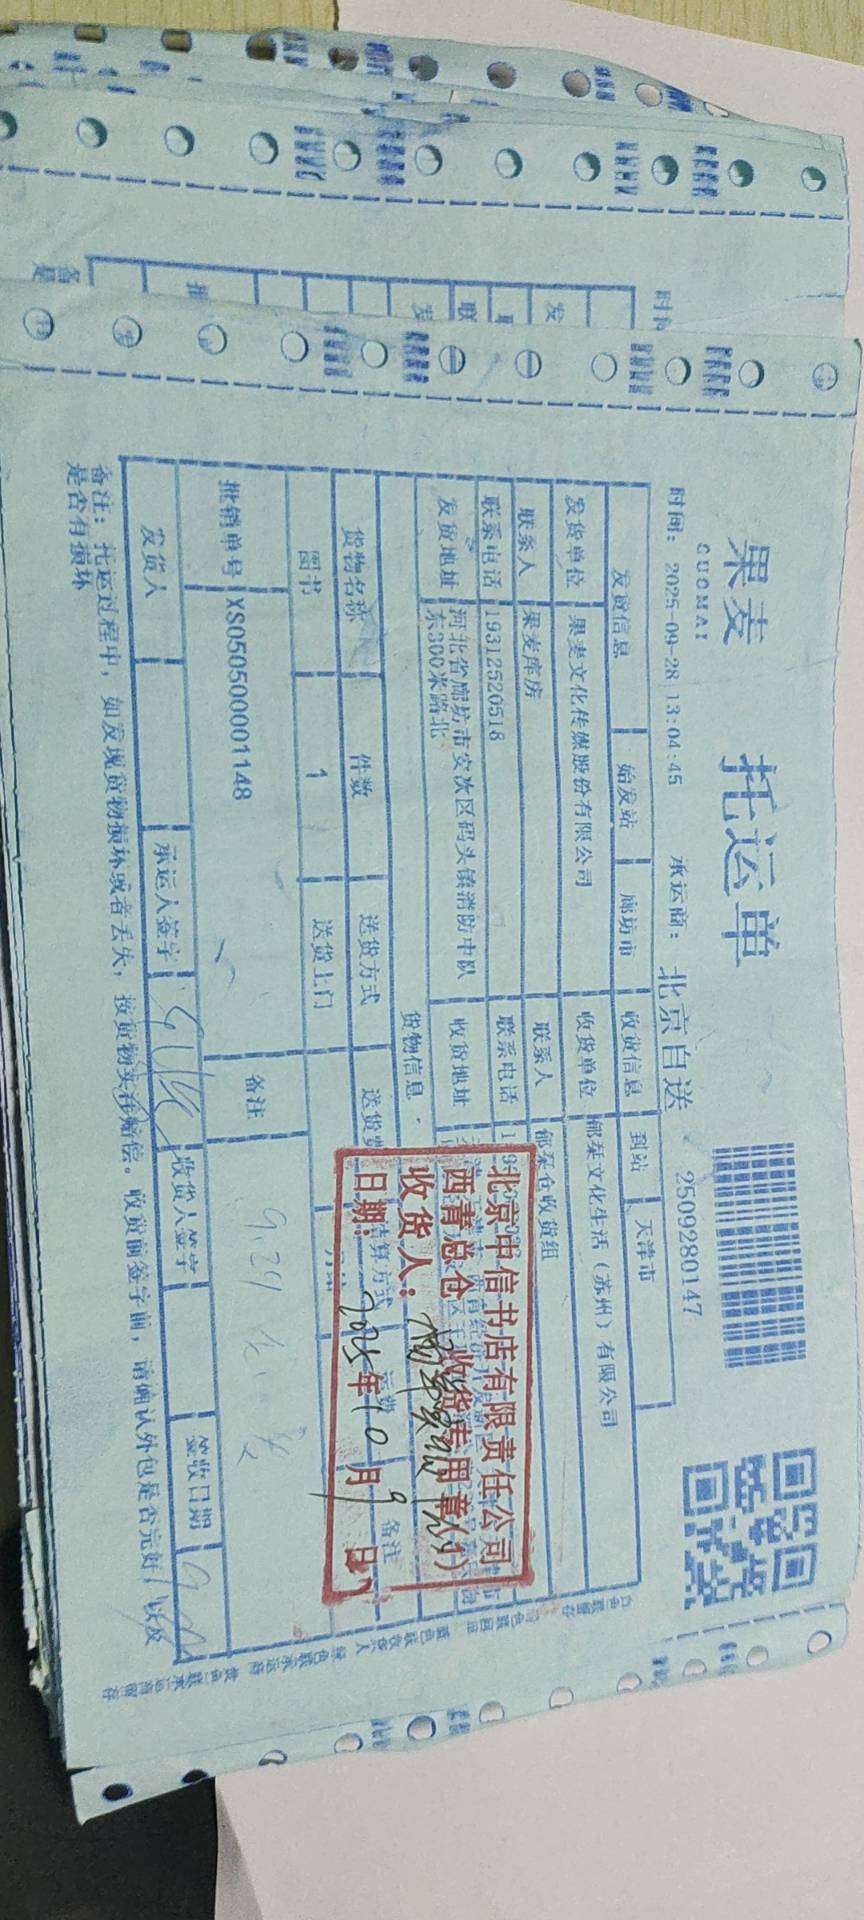 果麦
GUOMAI
托运单
2509280147
时间: 2025-09-28 13:04:45
承运商: 北京自送
发货信息 始发站 廊坊市 收货信息 到站 天津市
发货单位 果麦文化传媒股份有限公司 收货单位 郁栞文化生活（苏州）有限公司
联系人 果麦库房 联系人 郁栞仓收货组
联系电话 19312520518 联系电话
发货地址 河北省廊坊市安次区码头镇消防中队
东300米路北 收货地址
货物信息
货物名称 件数 送货方式 送货费 结算方式 运费 备注
图书 1 送货上门 月结
批销单号 XS050500001148 备注
发货人 承运人签字 收货人签字 签收日期
备注: 托运过程中, 如发现货物损坏或者丢失, 按货物实行赔偿。收货前签字前, 请确认外包是否完好, 以及
是否有损坏
北京中信书店有限责任公司
西青总仓 收货专用章(1)
收货人:
日期: 2025年10月9日